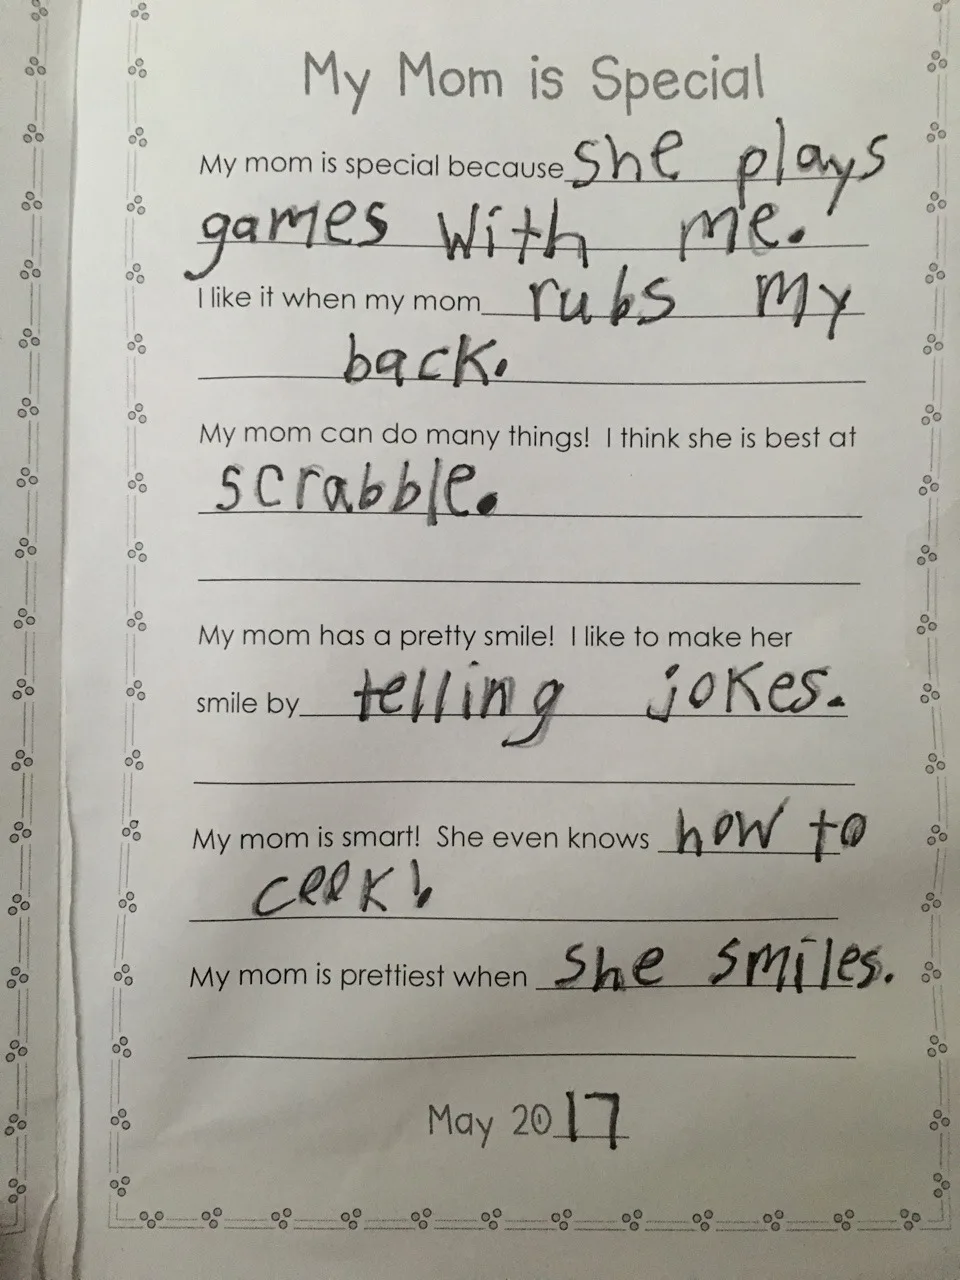 My Mom is Special
My mom is special because she plays
games with me.
I like it when my mom rubs my
back.
My mom can do many things! I think she is best at
scrabble.
My mom has a pretty smile! I like to make her
smile by telling jokes.
My mom is smart! She even knows how to
ceek!
My mom is prettiest when she smiles.
May 2017